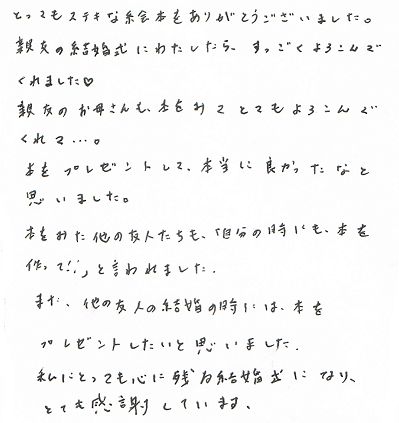 とってもステキな絵本をありがとうございました。
親友の結婚式にわたしたら、すっごくよろこんで
くれました♡
親友のお母さんも、本をみてとてもよろこんで
くれて…。
本をプレゼントして、本当に良かったなと
思いました。
本をみた他の友人たちも、「自分の時にも、本を
作って!!」と言われました.
また、他の友人の結婚の時には、本を
プレゼントしたいと思いました.
私にとっても心に残る結婚式になり、
とても感謝しています。